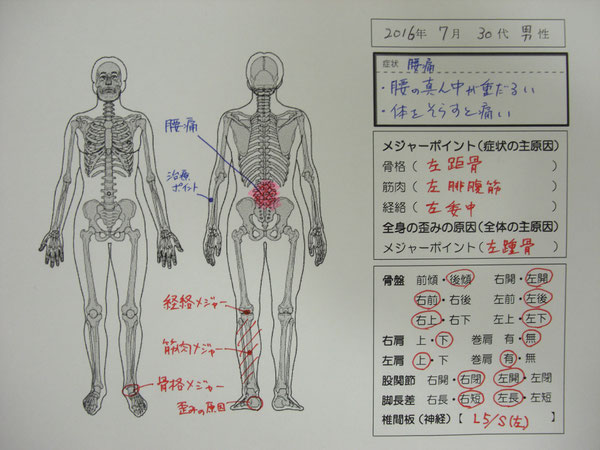 2016年 7月 30代 男性
症状 腰痛
・腰の真ん中が重だるい
・体をそらすと痛い
メジャーポイント(症状の主原因)
骨格( 左距骨 )
筋肉( 左腓腹筋 )
経絡( 左委中 )
全身の歪みの原因(全体の主原因)
メジャーポイント(左踵骨)
骨盤 前傾・後傾 右開・左開
右前・右後 左前・左後
右上・右下 左上・左下
右肩 上・下 巻肩 有・無
左肩 上・下 巻肩 有・無
股関節 右開・右閉 左開・左閉
脚長差 右長・右短 左長・左短
椎間板(神経)【 L5/S(左) 】
腰痛
治療ポイント
経絡メジャー
筋肉メジャー
骨格メジャー
歪みの原因